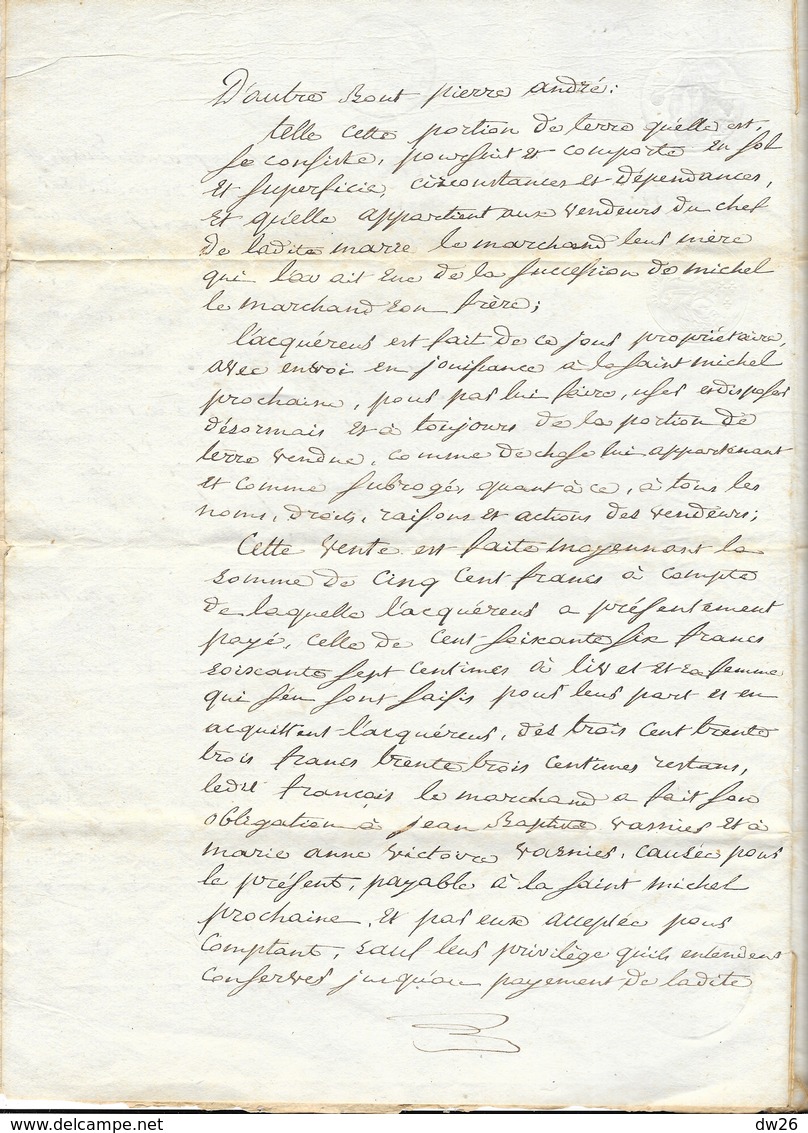 D'autre Bout pierre andré:
telle cette portion de terre qu'elle est,
se consiste, poursuit et comporte en sol
et superficie, circonstances et dépendances,
et qu'elle appartient aux vendeurs du chef
de ladite marie le marchand leur mère
qui l'avait eue de la succession de michel
le marchand son frère;
l'acquéreur est fait de ce jour propriétaire,
avec envoi en jouissance à la saint michel
prochaine, pour par lui faire, user et disposer
désormais et à toujours de la portion de
terre vendue, comme de chose lui appartenant
et comme subrogé, quant à ce, à tous les
noms, droits, raisons et actions des vendeurs;
Cette vente est faite moyennant la
somme de cinq cent francs à compte
de laquelle l'acquéreur a présentement
payé, celle de cent soixante six francs
soixante sept centimes à livet et sa femme
qui s'en sont saisis pour leur part et en
acquittent l'acquéreur, des trois cent trente
trois francs trente trois centimes restans,
ledit françois le marchand a fait son
obligation à jean Baptiste varnier et à
marie anne victoire varnier, causée pour
le présent, payable à la saint michel
prochaine, et par eux acceptée pour
comptant, sauf leur privilège qu'ils entendent
conserver jusqu'au payement de ladite
dw26
www.delcampe.net